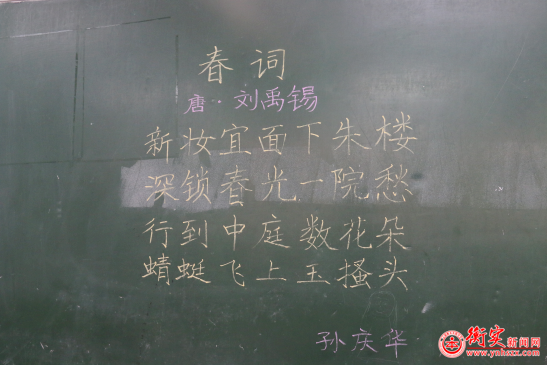 春词
唐·刘禹锡
新妆宜面下朱楼
深锁春光一院愁
行到中庭数花朵
蜻蜓飞上玉搔头
孙庆华
衡实新闻网
www.yahszx.com